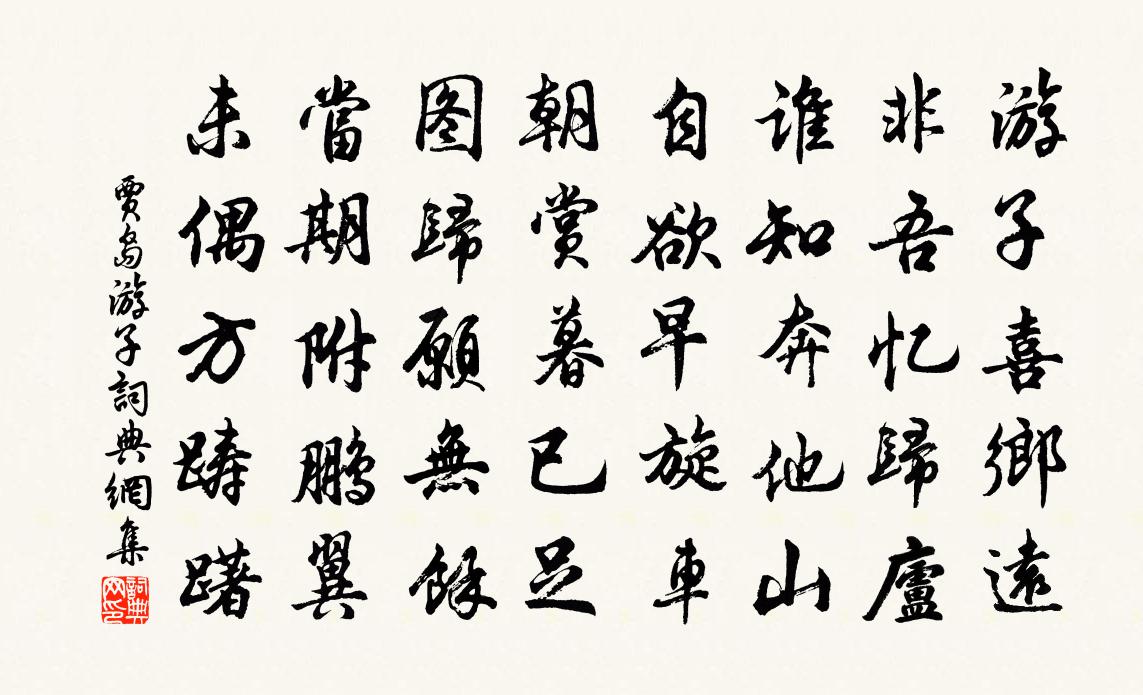 游子喜鄉遠
非吾忆歸廬
谁知奔他山
自欲早旋車
朝赏暮已足
图歸願無餘
當期附鹏翼
未偶方踌躇
賈岛游子詞典網集
詞典网印